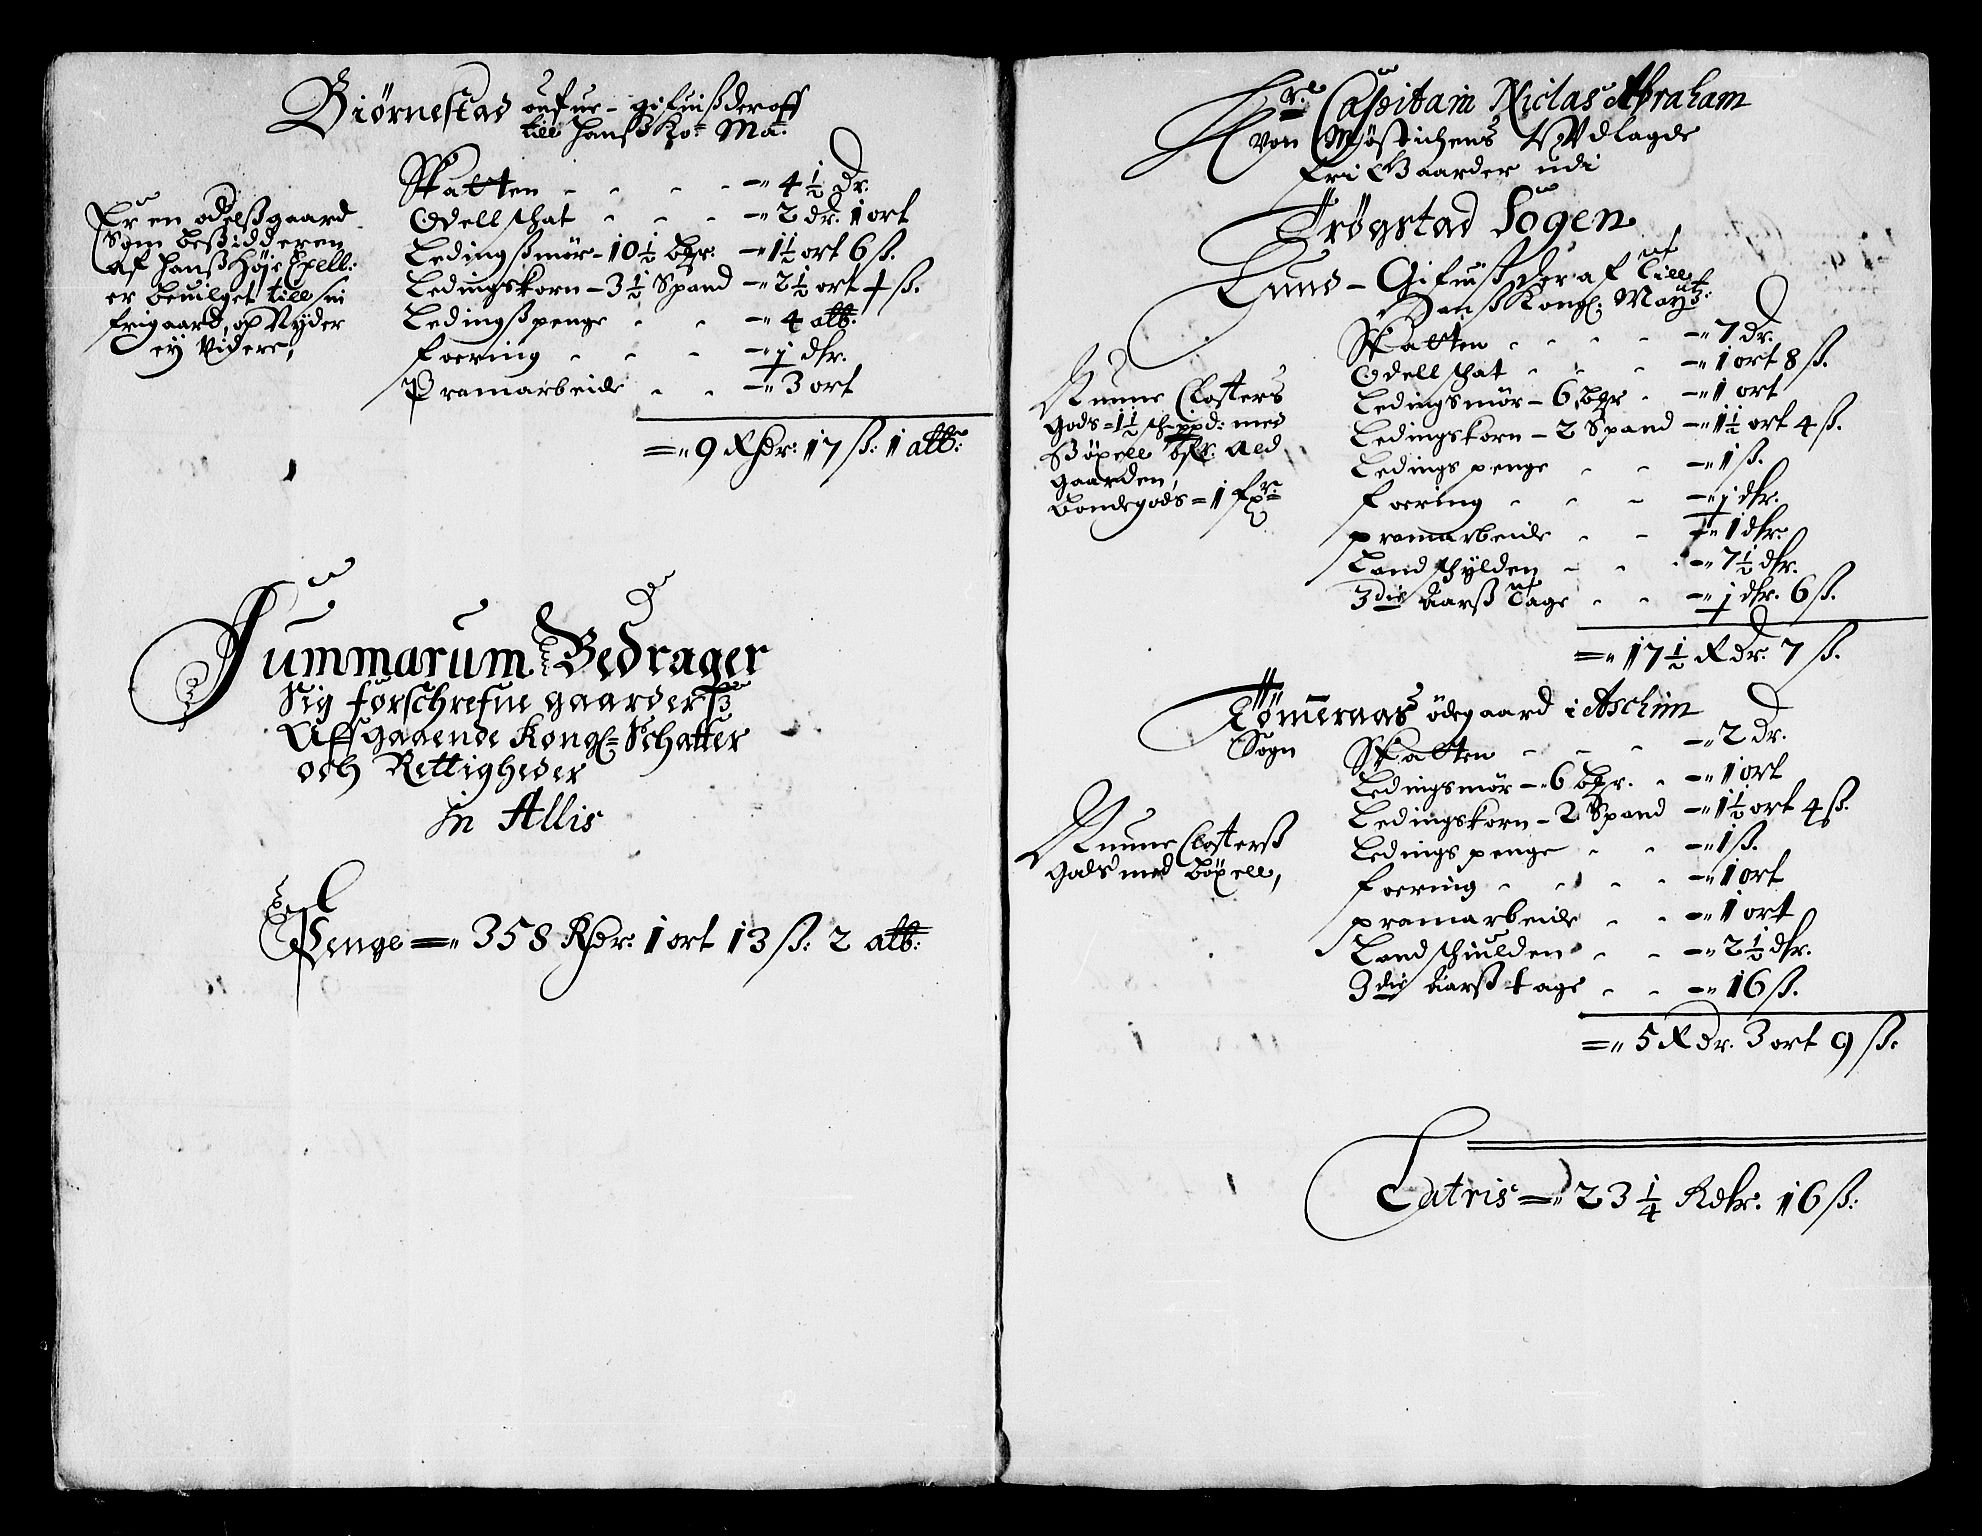 Biørnestad gifuis deroff
till Hanß Ko: Ma:
Er en odelßgaard
Som beßidderen
af Hanß Höje Exell:
er beuilget till sin
frigaard, och Nÿder
eÿ Videre,
Skatten - - - - -" 4½ Dr.
Odellschat - - - -" 2 dr. 1 ort
Ledingßmör - 10½ bpr: -" 1½ ort 6 ß.
Ledingskorn - 3½ Spand -" 2½ ort 4 ß.
Ledingßpenge - - -" 4 alb:
Foering - - - - -" j dlr.
Pramarbeide - - -" 3 ort
=" 9 Rdr: 17 ß: 1 alb:
Summarum Bedrager
Sig forschrefne gaarderß
Affgaaende Kongl: Schatter
och Rettigheder
in Allis
Penge =" 358 Rdr: 1 ort 13 ß: 2 alb:
Hr: Capitain Niclas Abraham
von Möstichens Vdlagde
fri Gaarder udi
Trögstad Sogen
Lund - Gifuiß der af till
Hanß Kongl: Maytz:
Nunne Closters
Gods = 1½ schppd: med
Böxell ofr. ald
gaarden,
Bondegods = 1 fr:
Skatten - - - - -" 7 dr.
Odellschat - - - -" 1 ort 8 ß.
Ledingsmör - 6 bpr - -" 1 ort
Ledingskorn - 2 Spand -" 1½ ort 4 ß.
Ledingspenge - - -" 1 ß.
Foering - - - -" j dlr.
pramarbeide - - -" 1 dlr.
Landschÿlden - - -" 7½ dlr.
3die Aarß tage - - -" j dlr. 6 ß.
=" 17½ Rdr. 7 ß.
Tömeraas ödegaard i Aschim
Sogn
Nunne Closterß
Gods med böxell,
Skatten - - - -" 2 dr.
Ledingsmör -" 6 bpr. - -" 1 ort
Ledingskorn - 2 Spand -" 1½ ort 4 ß.
Ledingspenge - - -" 1 ß.
Foering - - - - -" 1 ort
pramarbeide - - -" 1 ort
Landschiulden - - -" 2½ dlr.
3die Aarß tage - - -" 16 ß.
=" 5 Rdr. 3 ort 9 ß.
Latris =" 23¼ Rdlr. 16 ß: